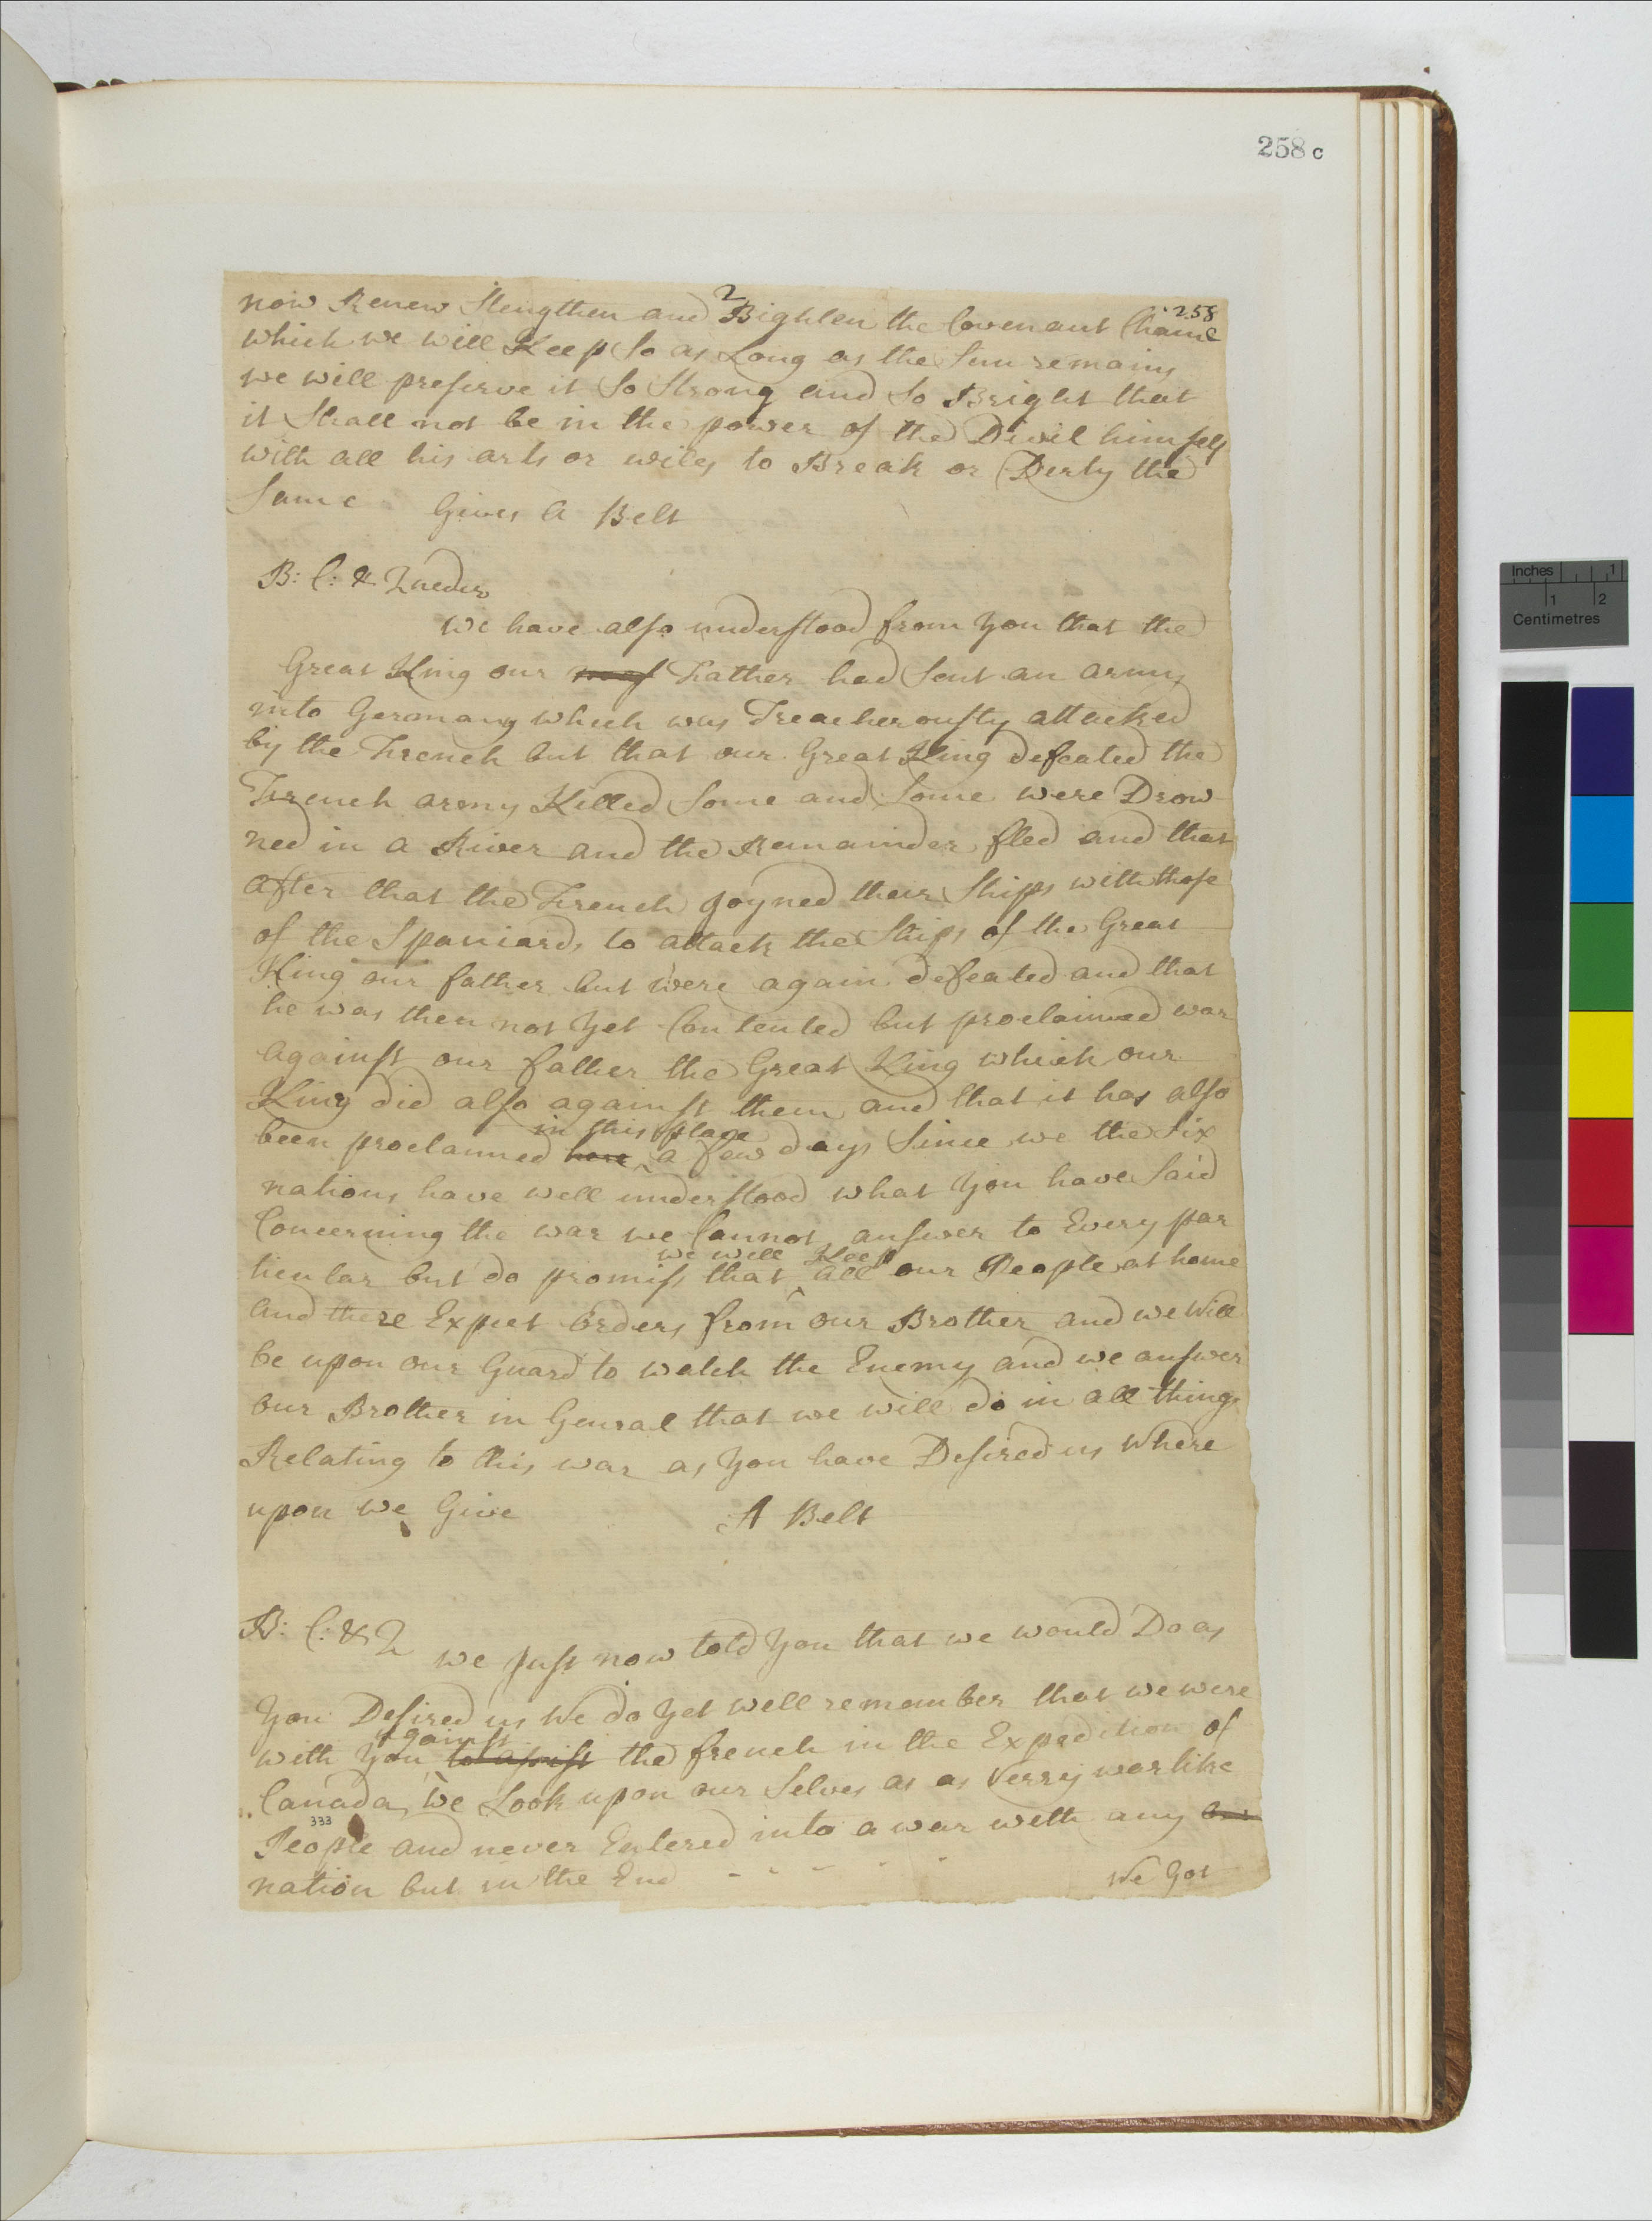 258 c
2
258
now Renew Stengthen and Bighten the Covenant Chaine
which we will Keep So as Long as the Sun remains
we will preserve it So Strong and So Bright that
it Shall not be in the power of the Divil himself
with all his arts or wiles to Break or Derty the
Same Gives A Belt
B: C: & Queder
We have also understood from you that the
Great King our Father had Sent an army
into Germany which was Treacherously attacked
by the French but that our Great King defeated the
French army Killed Some and Some were Drow
ned in a River and the Remainder fled and that
after that the French Joyned their Ships with those
of the Spaniards to attack the Ships of the Great
King our father but were again defeated and that
he was then not yet Contented but proclaimed war
against our father the Great King which our
King did also against them and that it has also
in this place
been proclaimed here a few days Since we the Six
nations have well understood what you have Said
Concerning the war we Cannot answer to Every par
we will Keep
ticular but do promiss that all our People at home
and there Expect orders from our Brother and we will
be upon our Guard to watch the Enemy and we answer
our Brother in Genral that we will do in all things
Relating to this war as you have Desired us where
upon we Give A Belt
B: C: & Q we Just now told you that we would Do as
you Desired us We do yet well remember that we were
against
with you to assist the french in the Expedition of
Canada, we Look upon our Selves as as Verry warlike
333
People and never Entered into a war with any
nation but in the End - - - - -
We Got
Inches 1
Centimetres 1 2